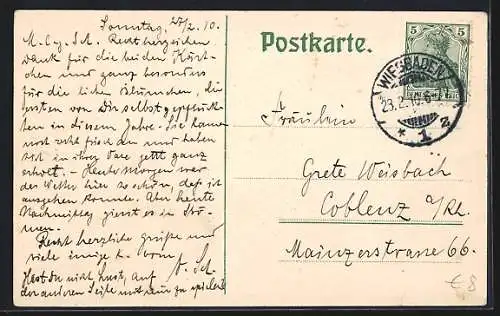 Sonntag, 27/2.10.
M. l. g. Sch. Recht herzlichen
Dank für die beiden Kärt-
chen und ganz besonders
für die lieben Blümchen, die
ersten von Dir selbst gepflückten
in diesem Jahre. Sie kamen
noch recht frisch an und haben
sich in ihrer Vase jetzt ganz
erholt. – Heute Morgen war
das Wetter hier so schön, daß ich
ausgehen konnte. Aber heute
Nachmittag giesst es in Strö-
men.
Recht herzliche Grüße und
viele innige K. vom
Hast Du nicht Lust, auf
der anderen Seite mit mir zu spielen?
Postkarte.
5 5
DEUTSCHES REICH
WIESBADEN
1
Fräulein
Grete Weisbach
Coblenz a/Rh.
Mainzerstrasse 66.
€8